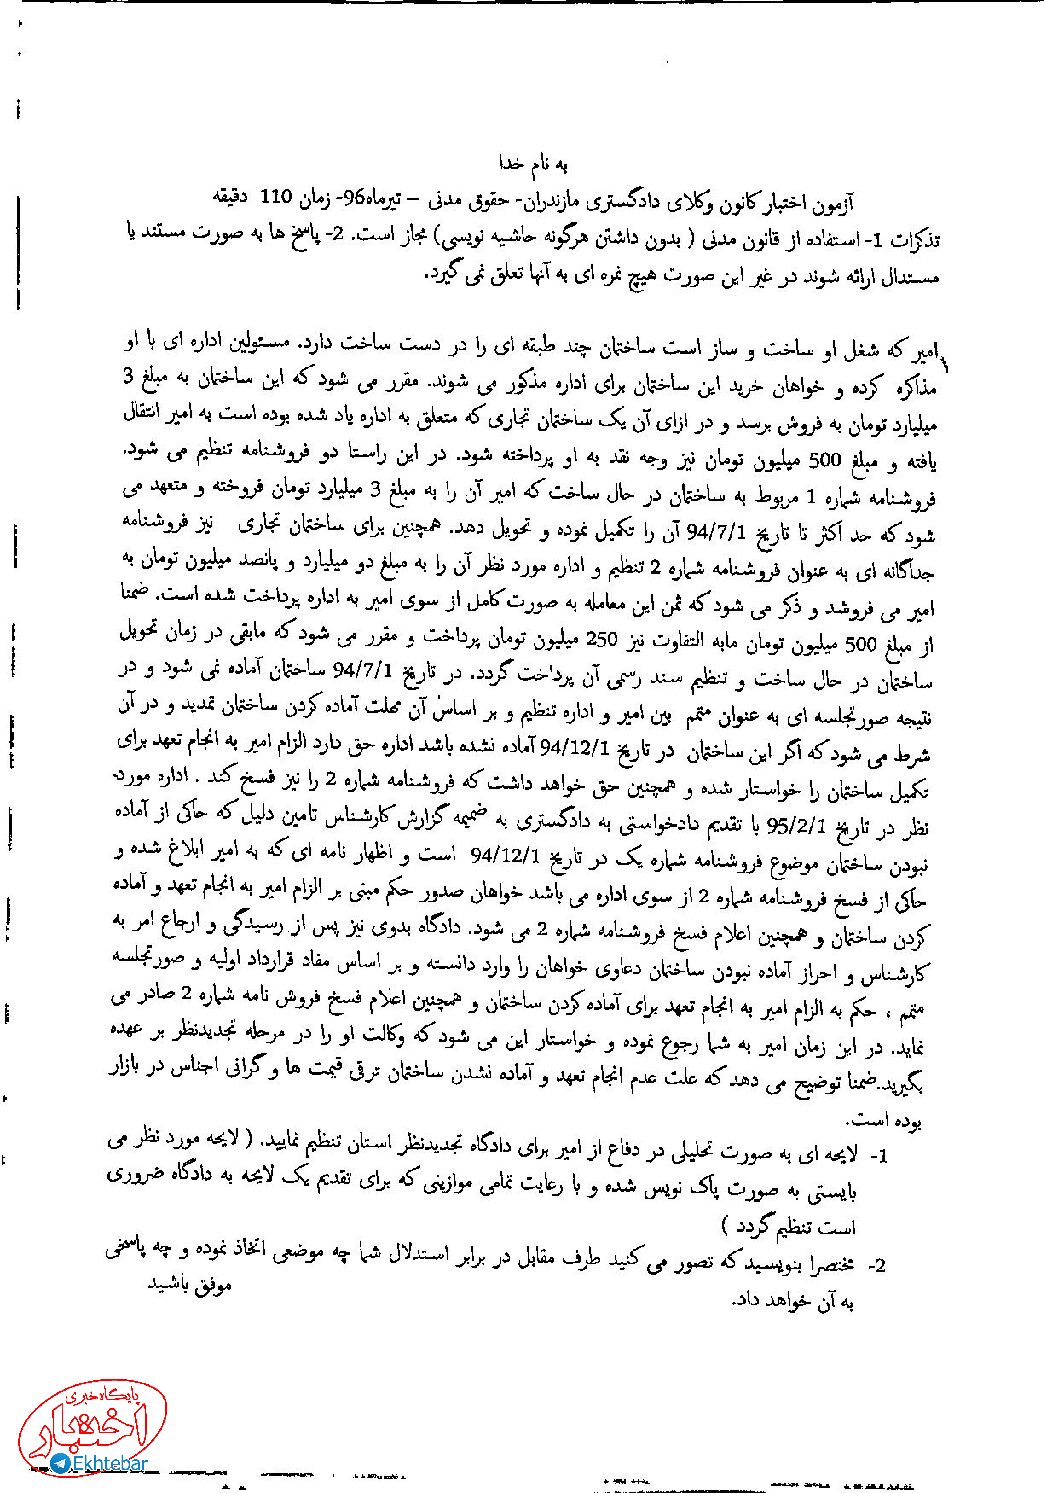 به نام خدا
آزمون اختبار کانون وکلای دادگستری مازندران- حقوق مدنی – تیرماه96- زمان 110 دقیقه
تذکرات 1- استفاده از قانون مدنی ( بدون داشتن هرگونه حاشیه نویسی) مجاز است. 2- پاسخ ها به صورت مستند یا
مستدال ارائه شوند در غیر این صورت هیچ نمره ای به آنها تعلق نمی گیرد.
امیر که شغل او ساخت و ساز است ساختمان چند طبقه ای را در دست ساخت دارد. مسئولین اداره ای با او
مذاکره کرده و خواهان خرید این ساختمان برای اداره مذکور می شوند. مقرر می شود که این ساختمان به مبلغ 3
میلیارد تومان به فروش برسد و در ازای آن یک ساختمان تجاری که متعلق به اداره یاد شده بوده است به امیر انتقال
یافته و مبلغ 500 میلیون تومان نیز وجه نقد به او پرداخته شود. در این راستا دو فروشنامه تنظیم می شود.
فروشنامه شماره 1 مربوط به ساختمان در حال ساخت که امیر آن را به مبلغ 3 میلیارد تومان فروخته و متعهد می
شود که حد اکثر تا تاریخ 94/7/1 آن را تکمیل نموده و تحویل دهد. همچنین برای ساختمان تجاری نیز فروشنامه
جداگانه ای به عنوان فروشنامه شماره 2 تنظیم و اداره مورد نظر آن را به مبلغ دو میلیارد و پانصد میلیون تومان به
امیر می فروشد و ذکر می شود که ثمن این معامله به صورت کامل از سوی امیر به اداره پرداخت شده است. ضمنا
از مبلغ 500 میلیون تومان مابه التفاوت نیز 250 میلیون تومان پرداخت و مقرر می شود که مابقی در زمان تحویل
ساختمان در حال ساخت و تنظیم سند رسمی آن پرداخت گردد. در تاریخ 94/7/1 ساختمان آماده نمی شود و در
نتیجه صورتجلسه ای به عنوان متمم بین امیر و اداره تنظیم و بر اساس آن مهلت آماده کردن ساختمان تمدید و در آن
شرط می شود که اگر این ساختمان در تاریخ 94/12/1 آماده نشده باشد اداره حق دارد الزام امیر به انجام تعهد برای
تکمیل ساختمان را خواستار شده و همچنین حق خواهد داشت که فروشنامه شماره 2 را نیز فسخ کند . اداره مورد
نظر در تاریخ 95/2/1 با تقدیم دادخواستی به دادگستری به ضمیمه گزارش کارشناس تامین دلیل که حاکی از آماده
نبودن ساختمان موضوع فروشنامه شماره یک در تاریخ 94/12/1 است و اظهار نامه ای که به امیر ابلاغ شده و
حاکی از فسخ فروشنامه شماره 2 از سوی اداره می باشد خواهان صدور حکم مبنی بر الزام امیر به انجام تعهد و آماده
کردن ساختمان و همچنین اعلام فسخ فروشنامه شماره 2 می شود. دادگاه بدوی نیز پس از رسیدگی و ارجاع امر به
کارشناس و احراز آماده نبودن ساختمان دعاوی خواهان را وارد دانسته و بر اساس مفاد قرارداد اولیه و صورتجلسه
متمم ، حکم به الزام امیر به انجام تعهد برای آماده کردن ساختمان و همچنین اعلام فسخ فروش نامه شماره 2 صادر می
نماید. در این زمان امیر به شما رجوع نموده و خواستار این می شود که وکالت او را در مرحله تجدیدنظر بر عهده
بگیرید.ضمنا توضیح می دهد که علت عدم انجام تعهد و آماده نشدن ساختمان ترقی قیمت ها و گرانی اجناس در بازار
بوده است.
1- لایحه ای به صورت تحلیلی در دفاع از امیر برای دادگاه تجدیدنظر استان تنظیم نمایید. ( لایحه مورد نظر می
بایستی به صورت پاک نویس شده و با رعایت تمامی موازینی که برای تقدیم یک لایحه به دادگاه ضروری
است تنظیم گردد )
2- مختصرا بنویسید که تصور می کنید طرف مقابل در برابر استدلال شما چه موضعی اتخاذ نموده و چه پاسخی
به آن خواهد داد.
موفق باشید
پایگاه خبری
اختبار
Ekhtebar